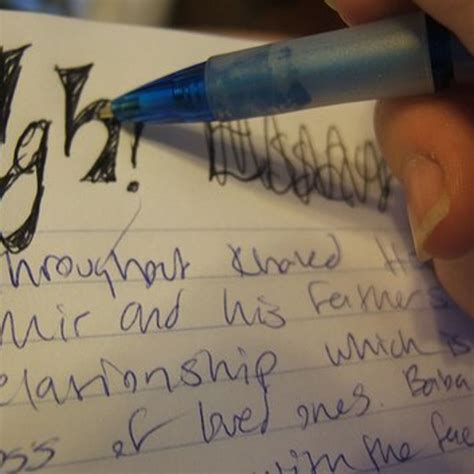 gh!
Throughout Khaled H
mir and his Fathers
elationship which is
oss of loved ones. Baba
with the